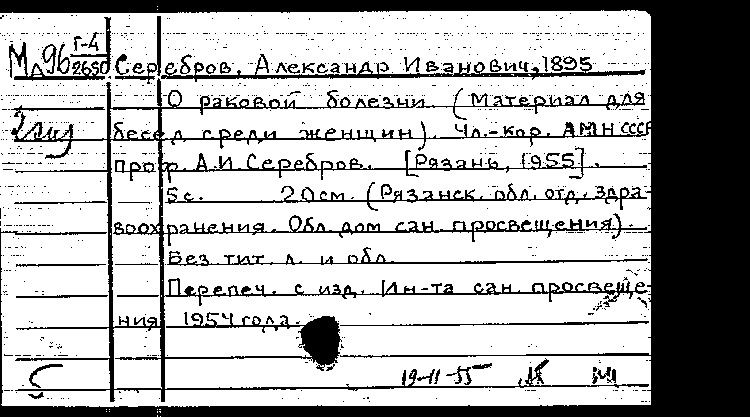 Мл96 Г-4
2650 Серебров, Александр Иванович, 1895
О раковой болезни. (Материал для
2 экз
бесед среди женщин). Чл.-кор. АМН СССР
проф. А.И. Серебров. [Рязань, 1955].
5с. 20см. (Рязанск. обл. отд. здра-
воохранения. Обл. дом сан. просвещения).
Без тит. л. и обл.
Перепеч. с изд. Ин-та сан. просвеще-
ния 1954 года.
19-11-55